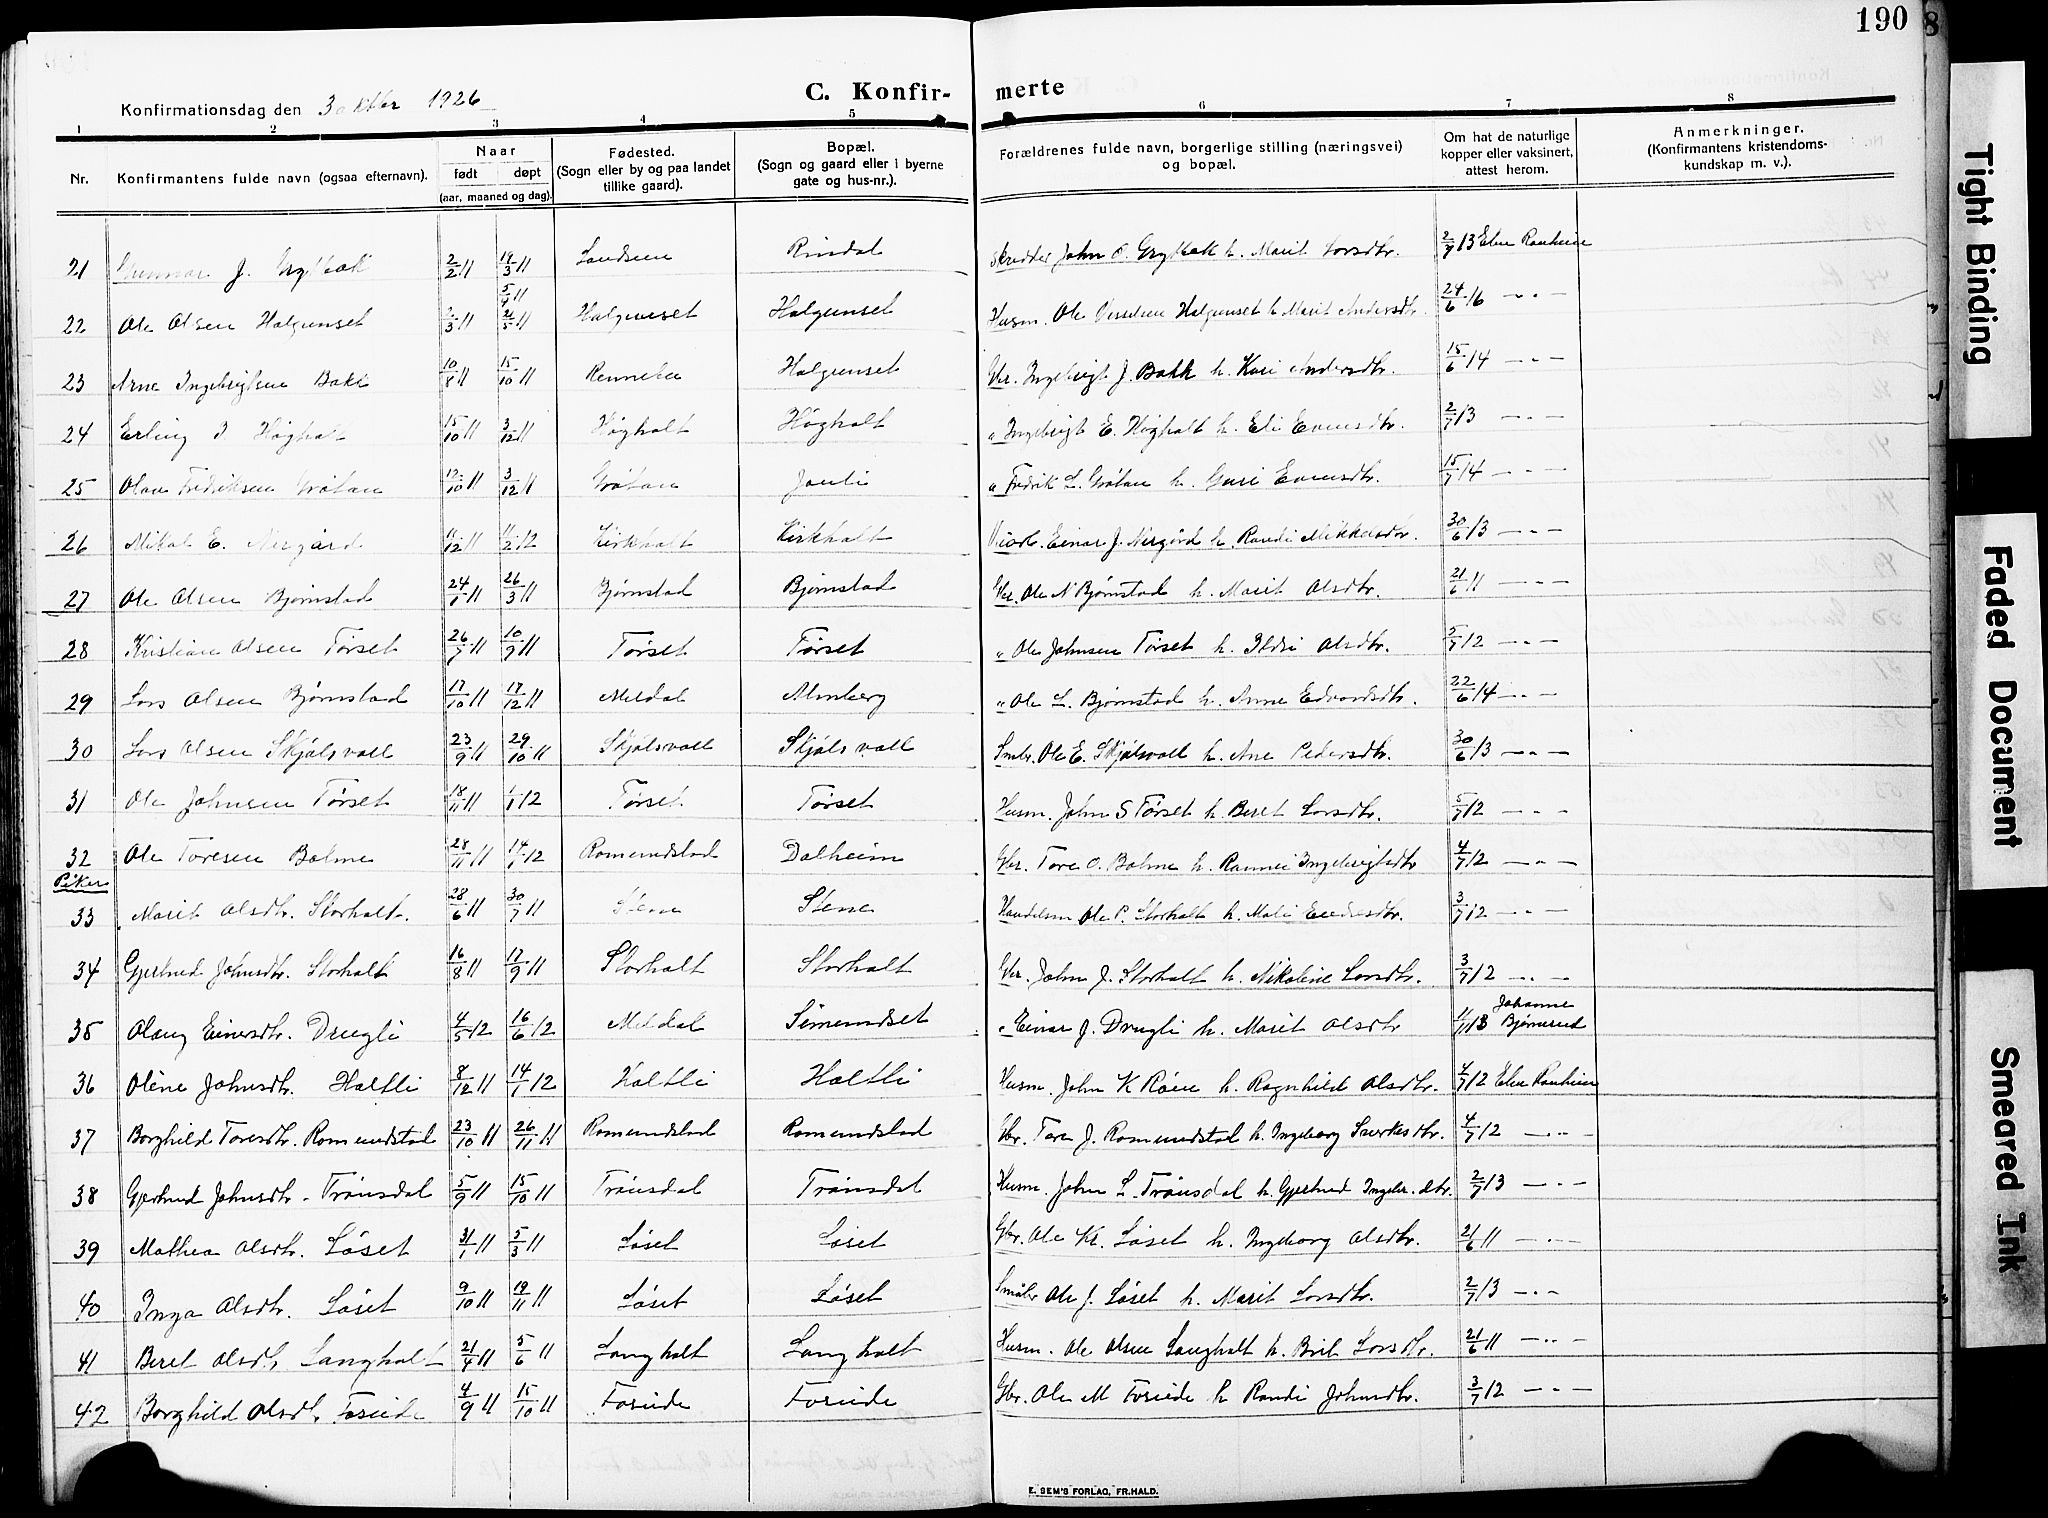 190
Konfirmationsdag den 3 oktbr 1926
C. Konfirmerte
1 2 3 4 5 6 7 8
Nr. Konfirmantens fulde navn (ogsaa efternavn). Naar født døpt (aar, maaned og dag). Fødested. (Sogn eller by og paa landet tillike gaard). Bopæl. (Sogn og gaard eller i byerne gate og hus-nr.). Forældrenes fulde navn, borgerlige stilling (næringsvei) og bopæl. Om hat de naturlige kopper eller vaksinert, attest herom. Anmerkninger. (Konfirmantens kristendomskundskap m. v.).
21 Gunnar J. Grytbak 2/2 11 19/3 11 Rindal Skredder John O. Grytbak h. Marit Larsdtr. 2/7 13 Elen Ranheim
22 Ole Olsen Halgunset 2/3 11 5/4 11 21/5 11 Halgunset Halgunset Husm. Ole Halgunset h Marit Andersdtr. 24/6 16 – " –
23 Arne Ingebrigtsen Bakk 10/8 11 15/10 11 Rennebu Halgunset Gbr. Ingebrigt J. Bakk h. Kari Andersdtr. 15/6 14 – " –
24 Erling I. Høghalt 15/10 11 3/12 11 Høghalt Høghalt " Ingebrigt E. Høghalt h. Eli Evensdtr. 2/7 13 – " –
25 Olav Fredriksen Gråtan 3/12 11 Gråtan Jonli " Fredrik L. Gråtan h. Guri Evensdtr. 15/7 14 – " –
26 Mikal E. Nergård 11/12 11 11/2 12 Kirkhalt Kirkhalt Einar J. Nergård h. Randi Mikkelsdtr. 30/6 13 – " –
27 Ole Olsen Bjørnstad 24/1 11 26/3 11 Bjørnstad Bjørnstad Gbr. Ole N Bjørnstad h. Marit Olsdtr. 21/6 11 – " –
28 Kristian Olsen Tørset 26/7 11 10/9 11 Tørset Tørset " Ole Johnsen Tørset h. Ildri Olsdtr. 5/7 12 – " –
29 Lars Olsen Bjørnstad 17/10 11 17/12 11 Meldal Almberg " Ole L. Bjørnstad h. Anne Edvardsdtr. 22/6 14 – " –
30 Lars Olsen Skjølsvall 23/9 11 29/10 11 Skjølsvall Skjølsvall Smbr. Ole E. Skjølsvall h. Ane Pedersdtr. 30/6 13 – " –
31 Ole Johnsen Tørset 18/11 11 1/1 12 Tørset Tørset Husm. John S Tørset h. Beret Larsdtr. 5/7 12 – " –
32 Ole Toresen Bolme 28/11 11 14/1 12 Romundstad Dalheim Gbr. Tore O. Bolme h. Ingebrigtsdtr 4/7 12 – " –
Piker
33 Marit Olsdtr. Storhalt. 28/6 11 30/7 11 Stene Stene Handelsm Ole P. Storhalt h. Mali Endresdtr. 3/7 12 – " –
34 Gjertrud Johnsdtr. Storhalt 16/8 11 17/9 11 Storhalt Storhalt Gbr. John J. Storhalt h. Nikoline Larsdtr. 3/7 12 – " –
35 Olaug Einersdtr. Drugli 4/5 12 16/6 12 Meldal Simundset " Einar J. Drugli h. Marit Olsdtr 11/11 13 Johanne Bjørnerud
36 Oline Johnsdtr. Haltli 8/12 11 14/1 12 Haltli Haltli Husm. John K Røen h. Ragnhild Olsdtr. 4/7 12 Elen Ranheim
37 Borghild Toresdtr. Romundstad 23/10 11 26/11 11 Romundstad Romundstad Gbr. Tore J. Romundstad h. Ingeborg Sverkesdtr. 4/7 12 – " –
38 Gjertrud Johnsdtr. Trønsdal 5/9 11 15/10 11 Trønsdal Trønsdal Husm. John L. Trønsdal h. Gjertrud Ingebr. dtr. 2/7 13 – " –
39 Mathea Olsdtr. Løset 31/1 11 5/3 11 Løset Løset Gbr. Ole Kr. Løset h. Ingeborg Olsdtr. 21/6 11 – " –
40 Inga Olsdtr. Løset 9/10 11 19/11 11 Løset Løset Småbr Ole J. Løset h. Marit Larsdtr. 2/7 13 – " –
41 Beret Olsdtr. Langhalt 21/4 11 5/6 11 Langhalt Langhalt Husm. Ole Olsen Langhalt h. Brit Larsdtr. 21/6 11 – " –
42 Borghild Olsdtr. Foseide 4/9 11 15/10 11 Foseide Foseide Gbr. Ole M Foseide h Randi Johnsdtr. 3/7 12 – " –
E. SEM'S FORLAG, FR.HALD.
Tight Binding
Faded Document
Smeared Ink